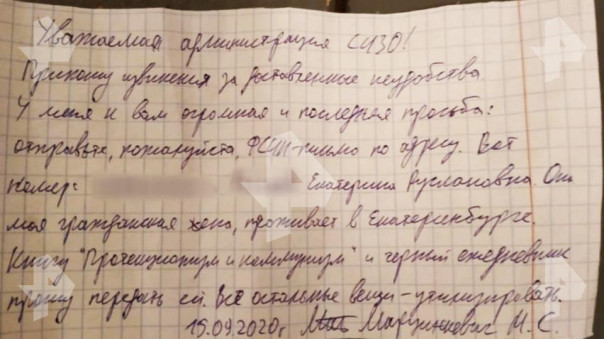 Уважаемая администрация СИЗО!
Приношу извинения за доставленные неудобства
У меня к вам огромная и последняя просьба:
отправьте, пожалуйста, ФСИН-письмо по адресу. Вот
номер: Екатерина Руслановна. Она
моя гражданская жена, проживает в Екатеринбурге.
Книгу "Протекционизм и коммунизм" и черный ежедневник
прошу передать ей. Все остальные вещи - утилизировать.
15.09.2020г Марцинкевич М.С.